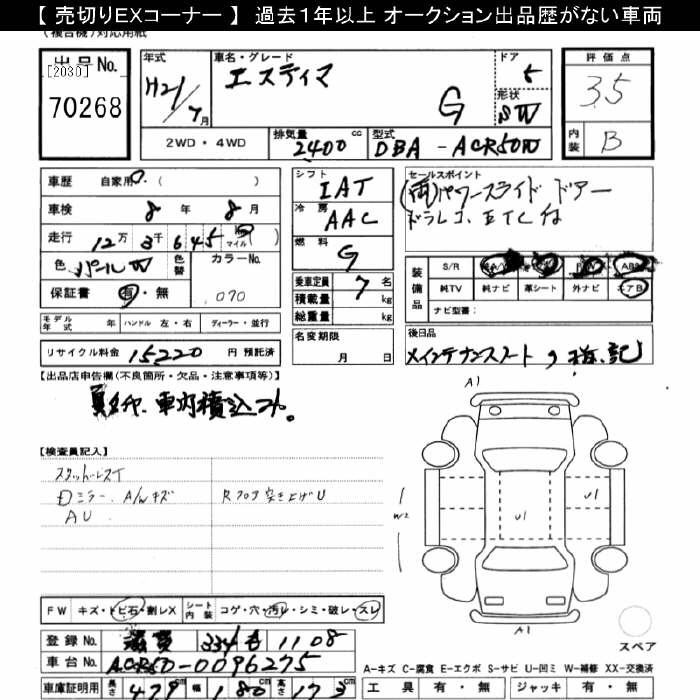 【 売切りEXコーナー 】 過去１年以上 オークション出品歴がない車両
（複合機）対応用紙
出品No.
[2030]
70268
年式
H21/7月
車名・グレード
エスティマ
G
ドア
5
形状
SW
評価点
35
内装
B
2WD・4WD
排気量
2400cc
型式
DBA-ACR50W
車歴 自家用 （ ）
車検 8年 8月
走行 12万3千645 マイル
色 パールW 色替
カラーNo. 070
保証書 有・無
シフト
IAT
冷房
AAC
燃料
G
乗車定員 7名
積載量 kg
総重量 kg
セールスポイント
(両)パワースライドドアー
ドラレコ、ETC付
装備品
S/R
ABS
純TV 純ナビ 革シート 外ナビ エアB
ナビ型番：
モデル年式 年 ハンドル 左・右 ディーラー・並行
リサイクル料金 15220 円 預託済
名変期限
月 日
後日品
メインテナンスノート
記
【出品店申告欄（不良箇所・欠品・注意事項等）】
車内積込み。
【検査員記入】
スタッドレスT
Dミラー A/Wキズ
AU
Rフロア突き上げU
A1
W2
U1
U1
A1
スペア
FW キズ・トビ石・割レX
シート内装 コゲ・穴・汚レ・シミ・破レ・スレ
登録No. 滋賀 334 1108
車台No. ACR50-0096275
車庫証明用 長さ 479cm 幅 180cm 高さ 173cm
A-キズ C-腐食 E-エクボ S-サビ U-凹ミ W-補修 XX-交換済
工具 有・無 ジャッキ 有・無